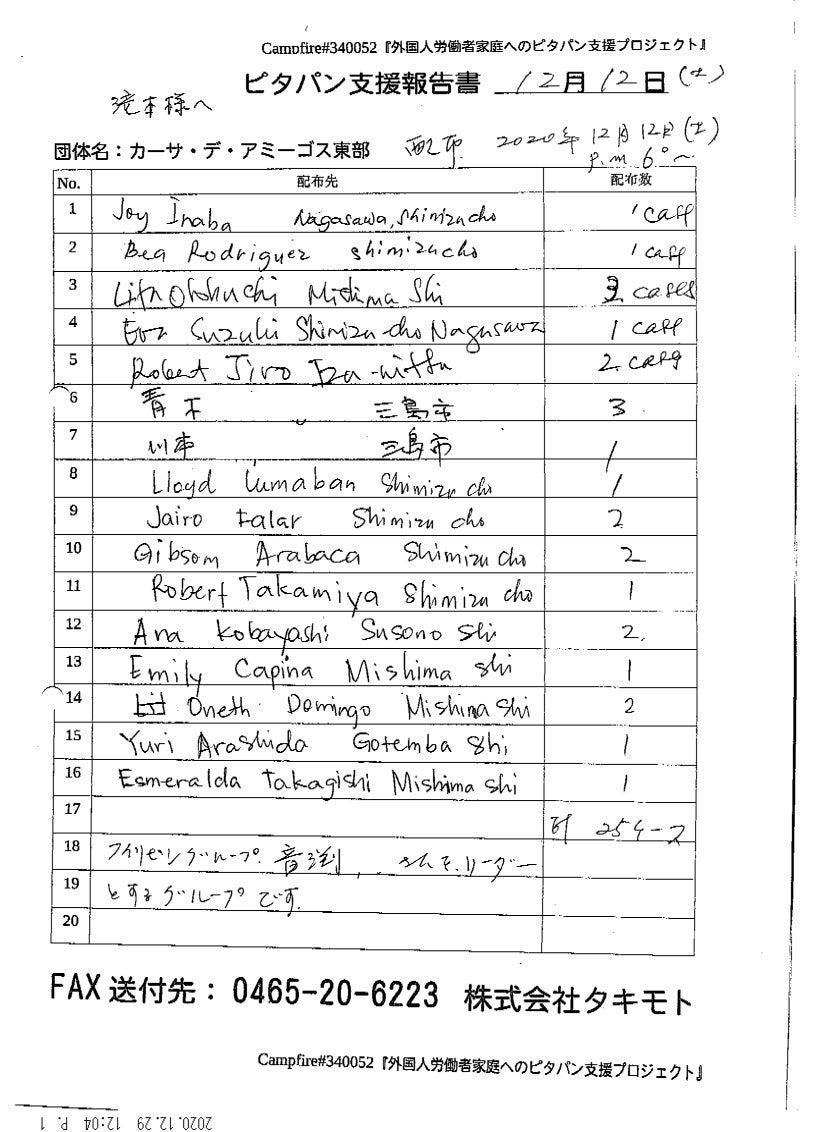 Campfire#340052『外国人労働者家庭へのピタパン支援プロジェクト』
ピタパン支援報告書 12月12日(土)
滝本様へ
団体名：カーサ・デ・アミーゴス東部 配布 2020年12月12日(土)
P.m 6°~
No. 配布先 配布数
1 Joy Inaba Nagasawa, Shimizucho 1 case
2 Bea Rodriguez shimizucho 1 case
3 Mishima Shi 2 cases
4 Eva Suzuki Shimizu-cho Nagasawa 1 case
5 Robert Jiro 2 case
6 青木 三島市 3
7 川本 三島市 1
8 Lloyd Lumaban Shimizu cho 1
9 Jairo Falar Shimizu cho 2
10 Gibsom Arabaca Shimizu cho 2
11 Robert Takamiya Shimizu cho 1
12 Ana Kobayashi Susono Shi 2.
13 Emily Capina Mishima shi 1
14 Oneth Domingo Mishima Shi 2
15 Yuri Arashida Gotemba Shi 1
16 Esmeralda Takagishi Mishima shi 1
17 計 25ケース
18 フィリピングループ. さんをリーダー
19 とするグループです.
20
FAX 送付先： 0465-20-6223 株式会社タキモト
Campfire#340052『外国人労働者家庭へのピタパン支援プロジェクト』
2020.12.29 12:04 P. 1